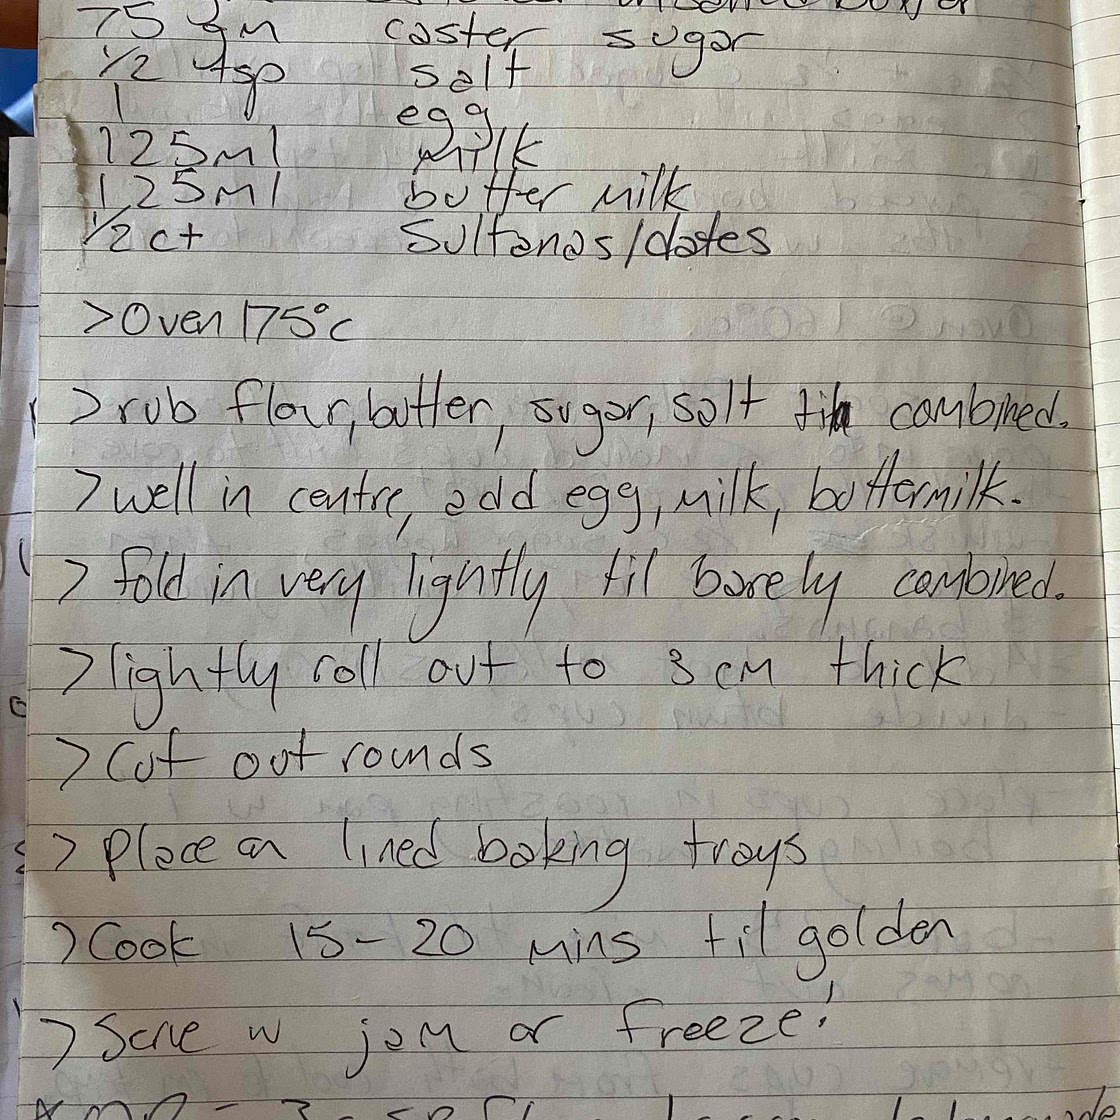 unsalted butter
75 gm caster sugar
1/2 tsp salt
1 egg
125ml milk
125ml butter milk
1/2 ct sultanas/dates
>Oven 175°c
>rub flour, butter, sugar, salt til combined.
>well in centre, add egg, milk, buttermilk.
> fold in very lightly til barely combined.
>lightly roll out to 3 cm thick
>cut out rounds
> place on lined baking trays
>Cook 15-20 mins til golden
> Serve w jam or freeze!